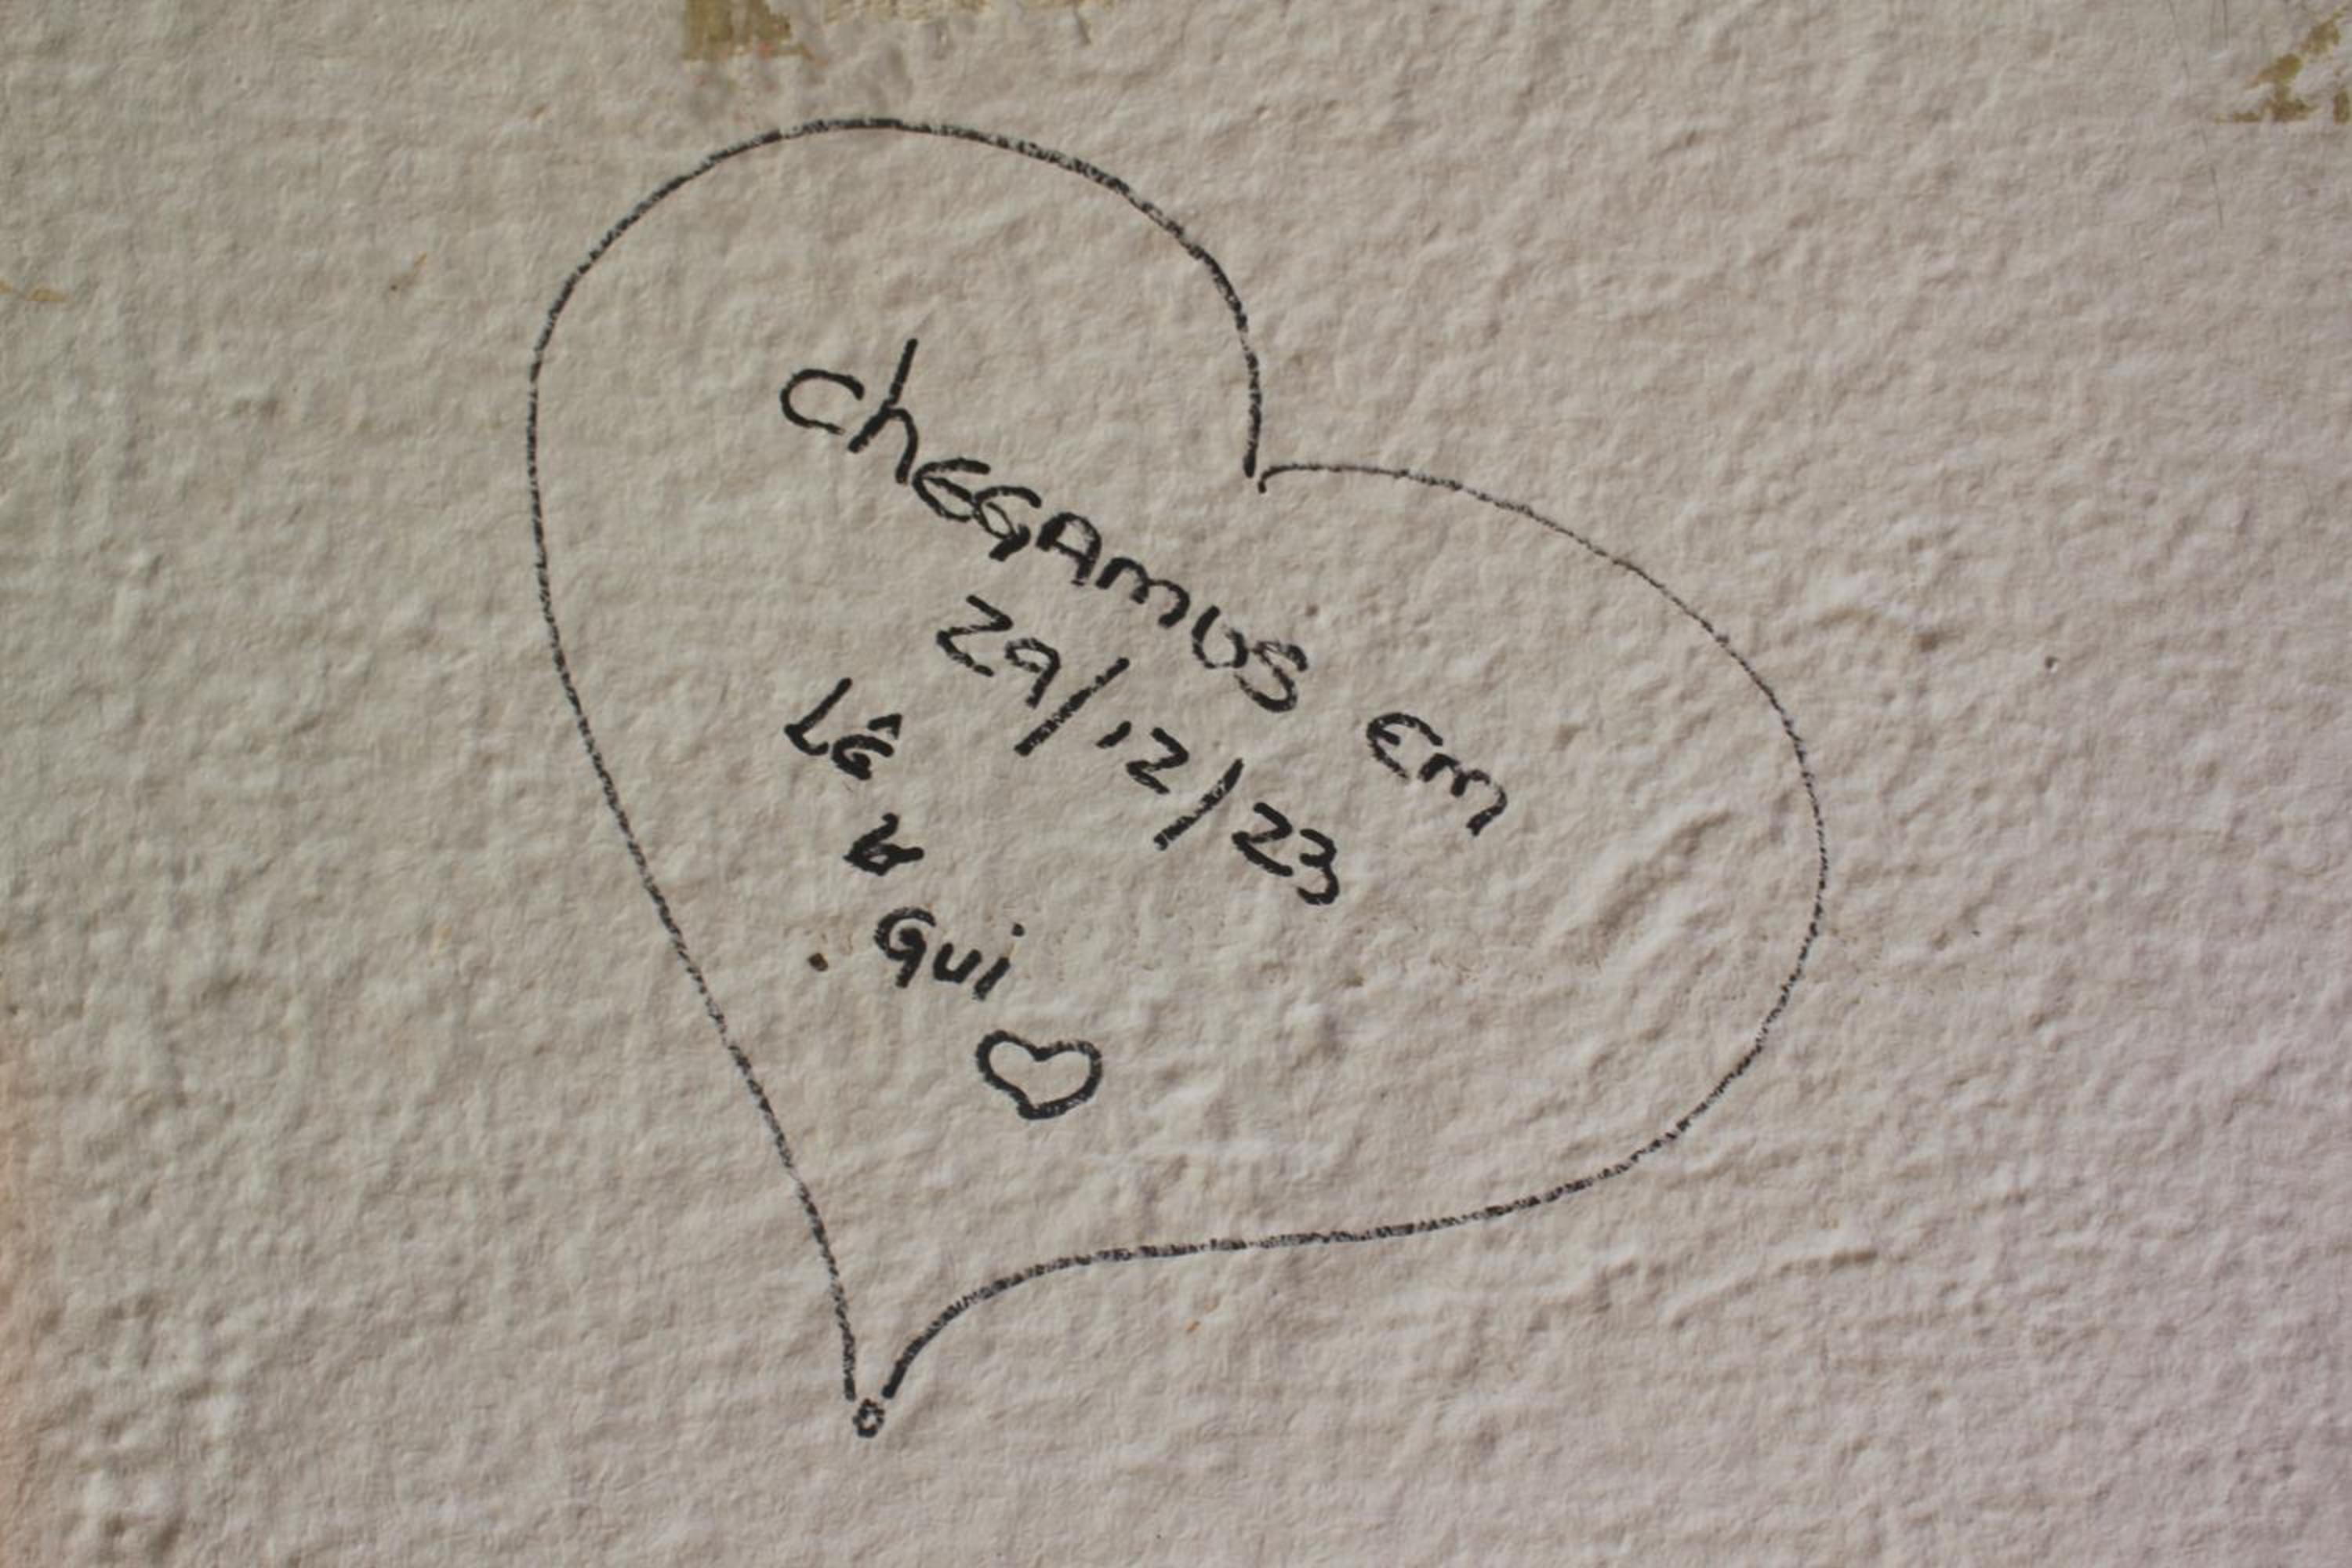 ChEGAmOS Em
29/12/23
Lê
&
Gui